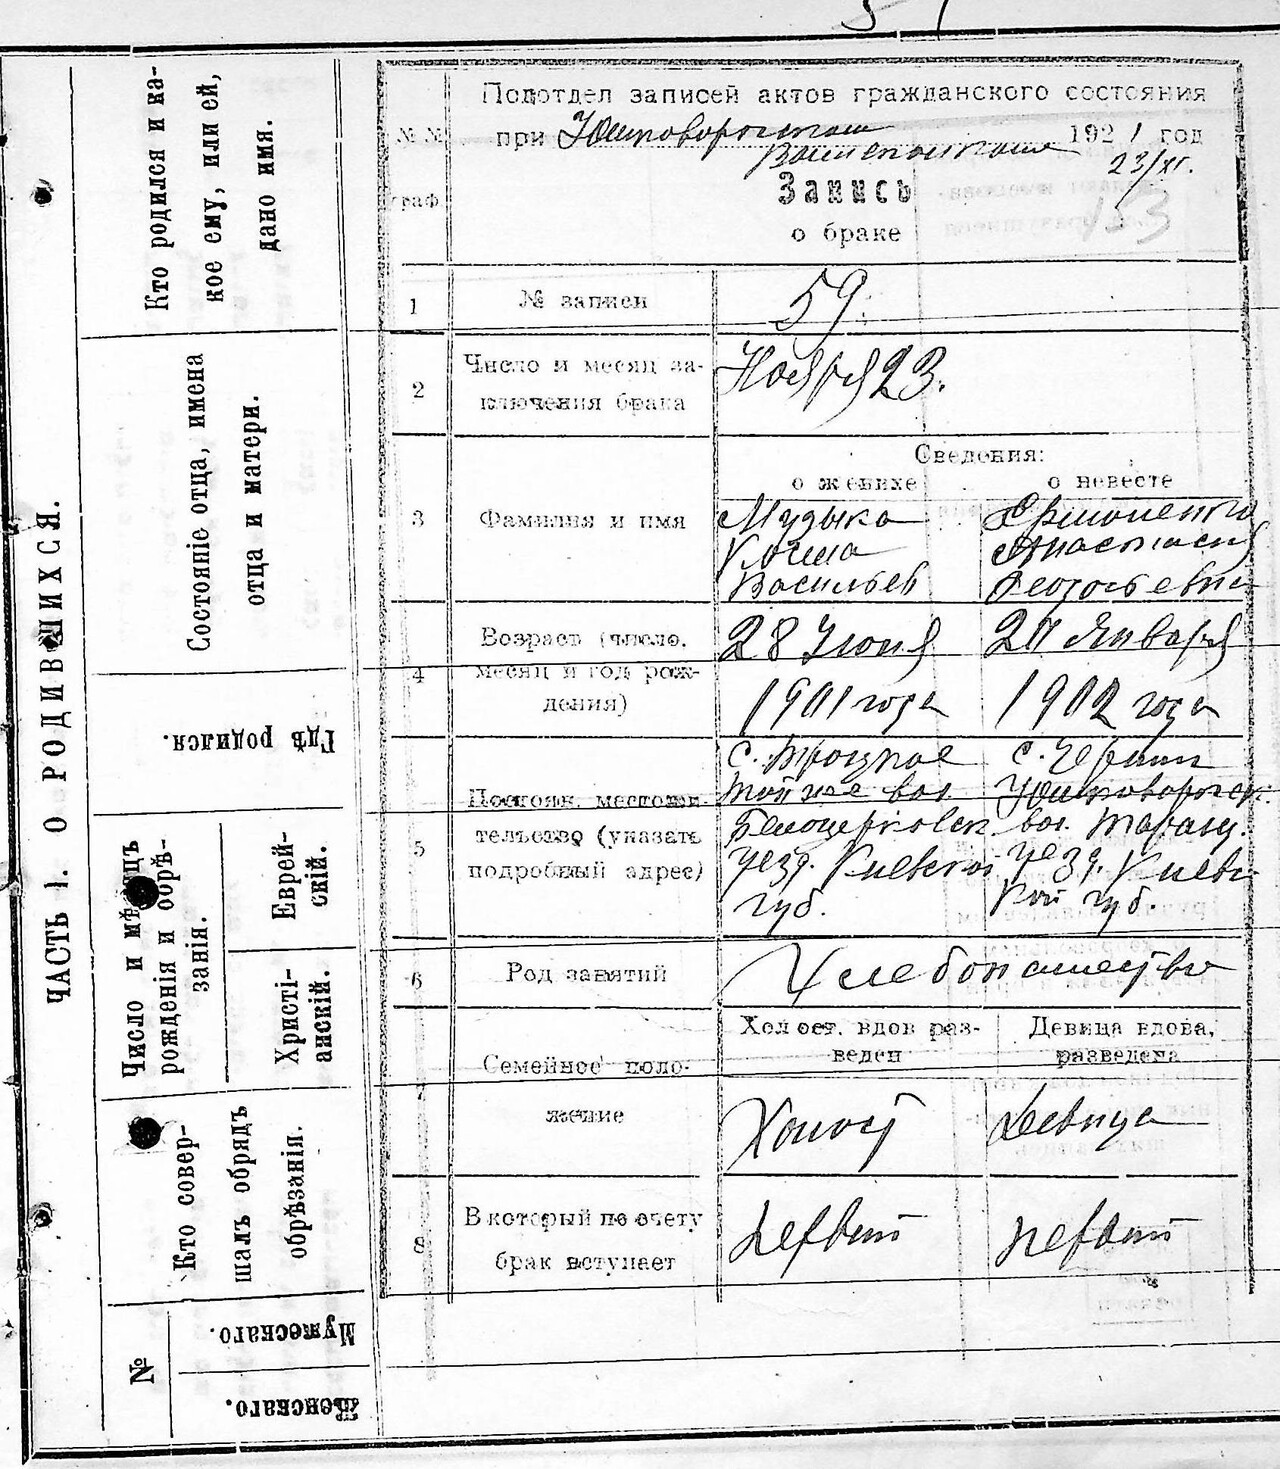 Подотдел записей актов гражданского состояния
№ №
при
1921 год
23/XI.
граф
Запись
о браке
1
№ записи
59.
2
Число и месяц за-
ключения брака
Ноября 23.
Сведения:
о женихе
о невесте
3
Фамилия и имя
Музыка
Косма
Васильев
Анастасия
Георгьевна
4
Возраст (число,
месяц и год рож-
дения)
28 Июня
1901 года
Января
1902 года
5
Постоян. местожи-
тельство (указать
подробный адрес)
с. Троцкое
той же вол.
Белоцерковск
уезд. Киевской
губ.
с.
вол. Таращ.
уезд. Киевс
кой губ.
6
Род занятий
Хлебопашество
Холост. вдов раз-
веден
Девица вдова,
разведена
7
Семейное поло-
жение
Холост
Девица
8
В который по счету
брак вступает
первый
первый
ЧАСТЬ I. О РОДИВШИХСЯ.
Кто родился и ка-
кое ему, или ей,
дано имя.
Состояніе отца, имена
отца и матери.
Гдѣ родился.
Число и мѣсяцъ
рожденія и обрѣ-
занія.
Еврей-
скій.
Христі-
анскій.
Кто совер-
шалъ обрядъ
обрѣзанія.
№
Мужескаго.
Женскаго.